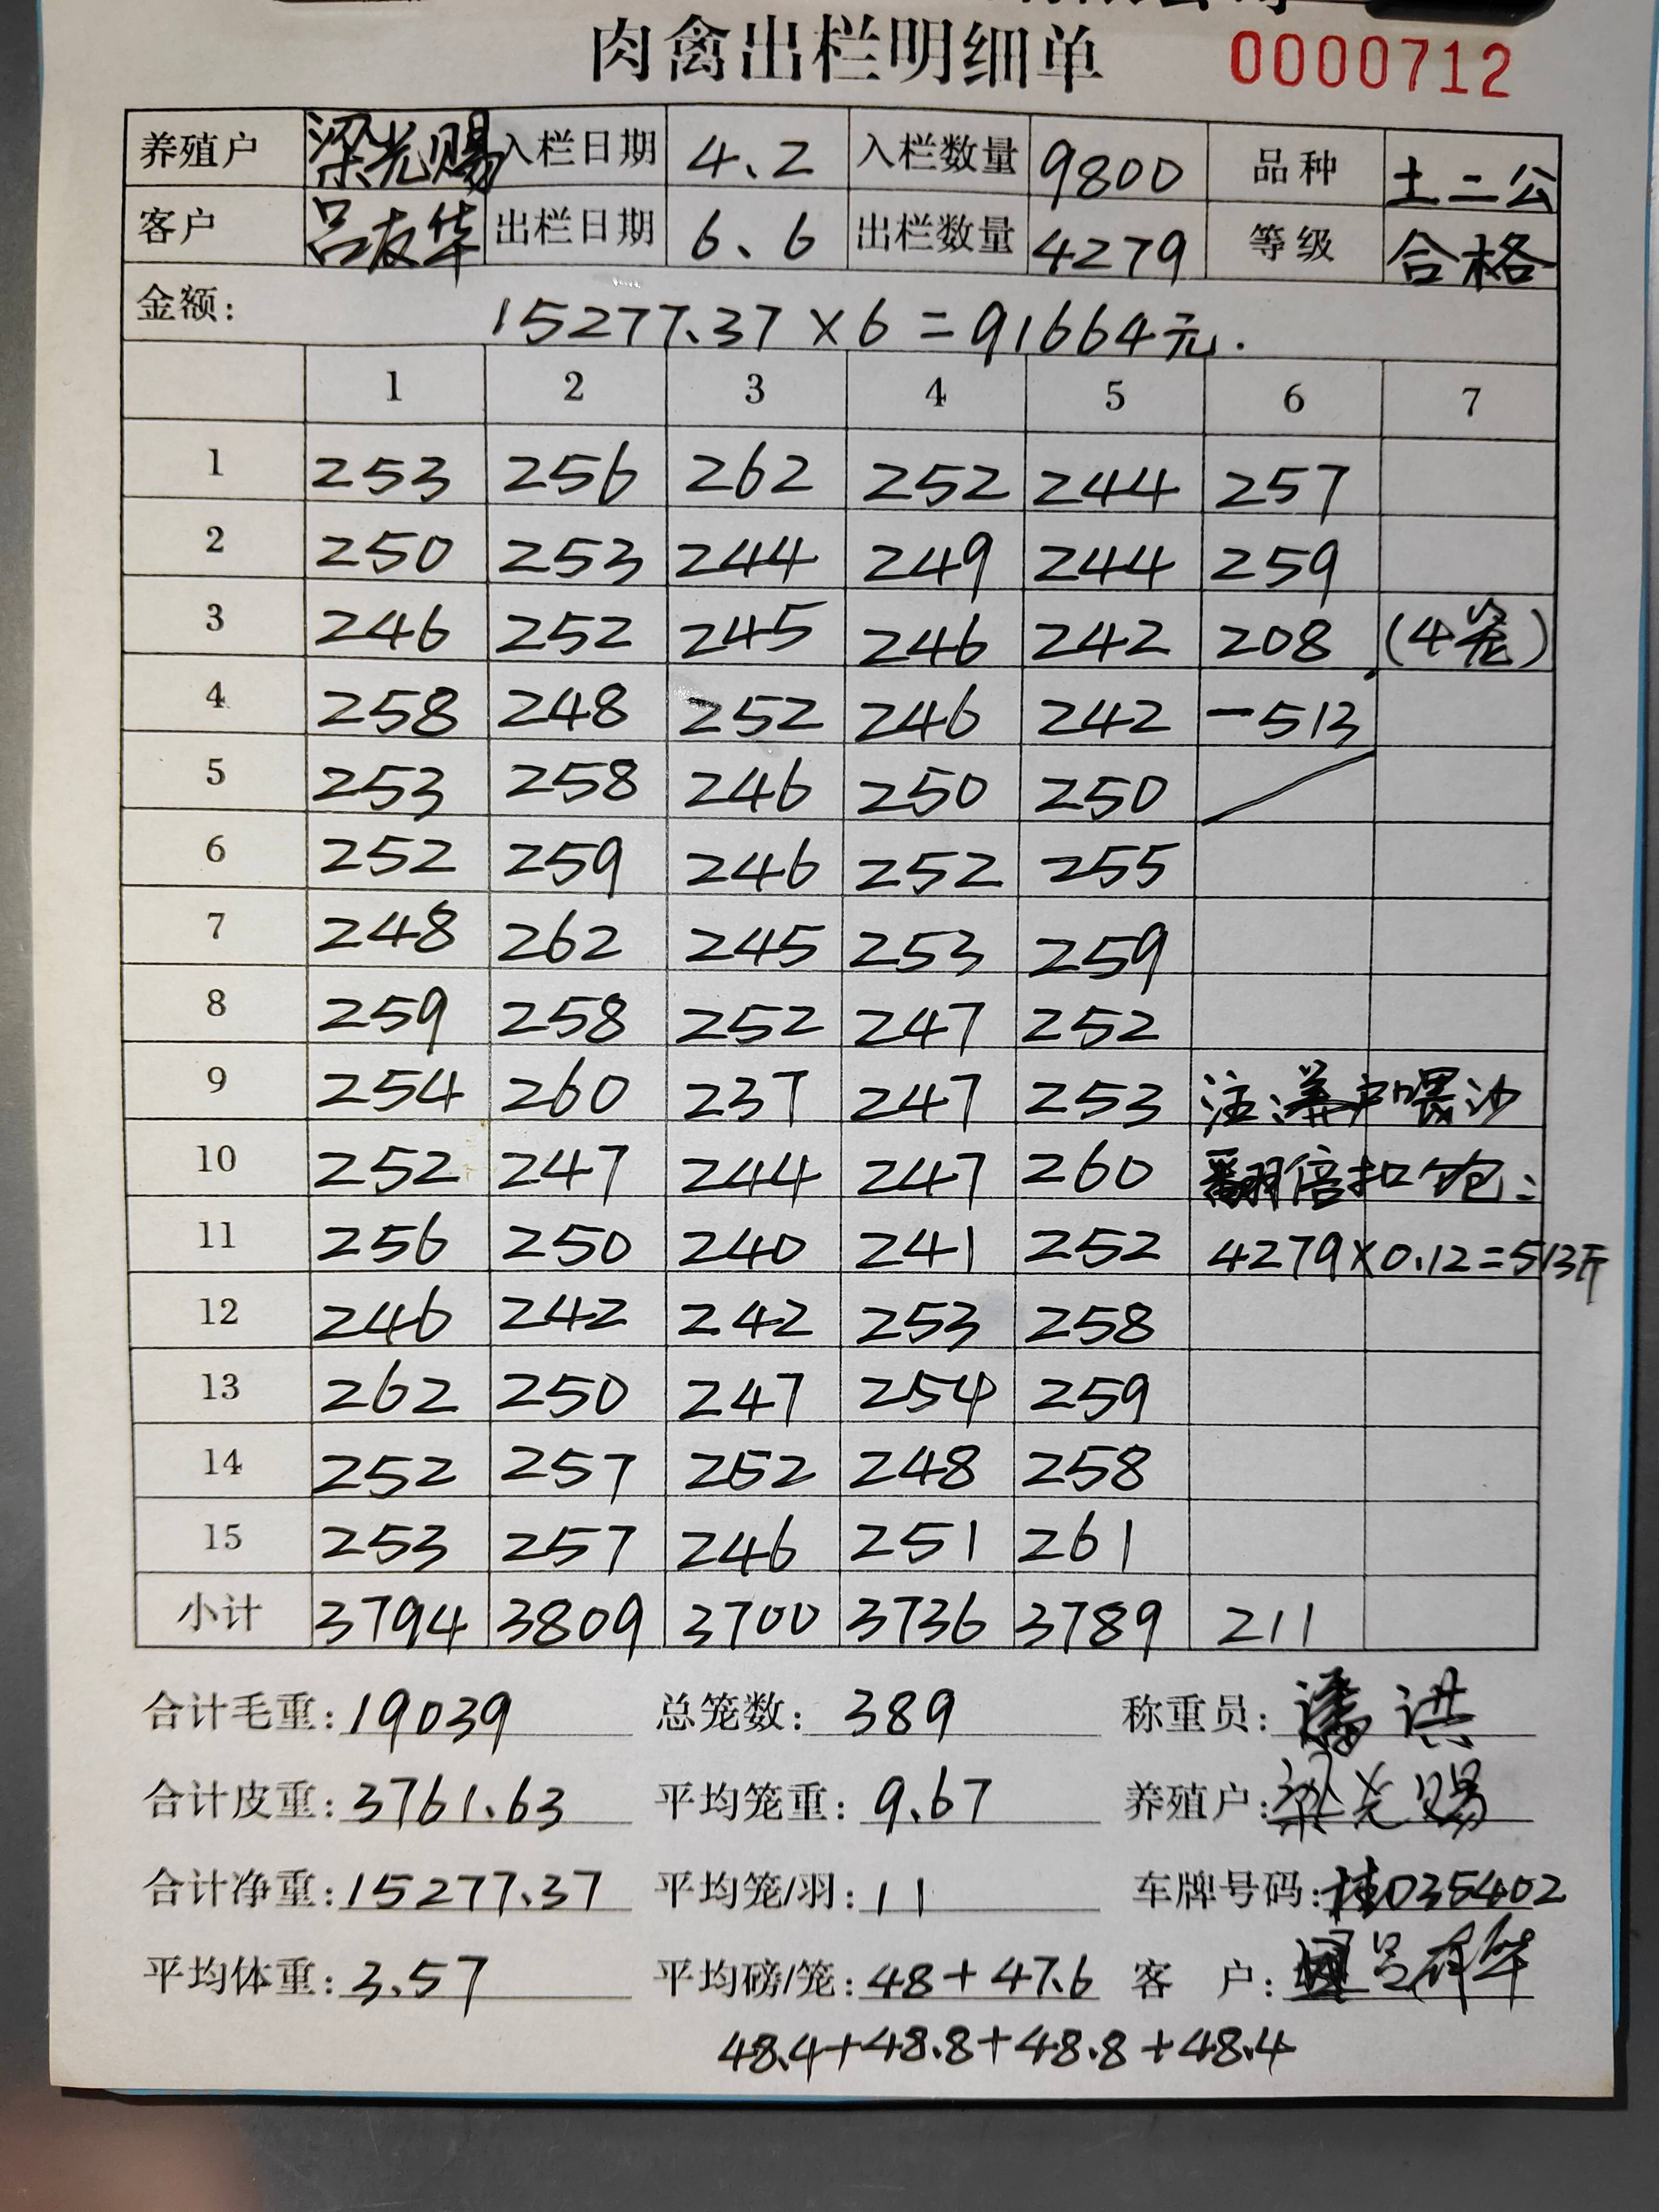 肉禽出栏明细单 0000712
养殖户 梁光赐 入栏日期 4.2 入栏数量 9800 品种 土二公
客户 吕友华 出栏日期 6.6 出栏数量 4279 等级 合格
金额: 15277.37×6=91664元.
1 2 3 4 5 6 7
1 253 256 262 252 244 257
2 250 253 244 249 244 259
3 246 252 245 246 242 208 (4笼)
4 258 248 252 246 242 -513
5 253 258 246 250 250
6 252 259 246 252 255
7 248 262 245 253 259
8 259 258 252 247 252
9 254 260 237 247 253 注:养户喂沙
10 252 247 244 247 260 翻倍扣饱:
11 256 250 240 241 252 4279×0.12=513斤
12 246 242 242 253 258
13 262 250 247 254 259
14 252 257 252 248 258
15 253 257 246 251 261
小计 3794 3809 3700 3736 3789 211
合计毛重:19039 总笼数:389 称重员:潘洪
合计皮重:3761.63 平均笼重:9.67 养殖户:梁光赐
合计净重:15277.37 平均笼/羽:11 车牌号码:桂035402
平均体重:3.57 平均磅/笼:48+47.6 客 户:吕友华
48.4+48.8+48.8+48.4